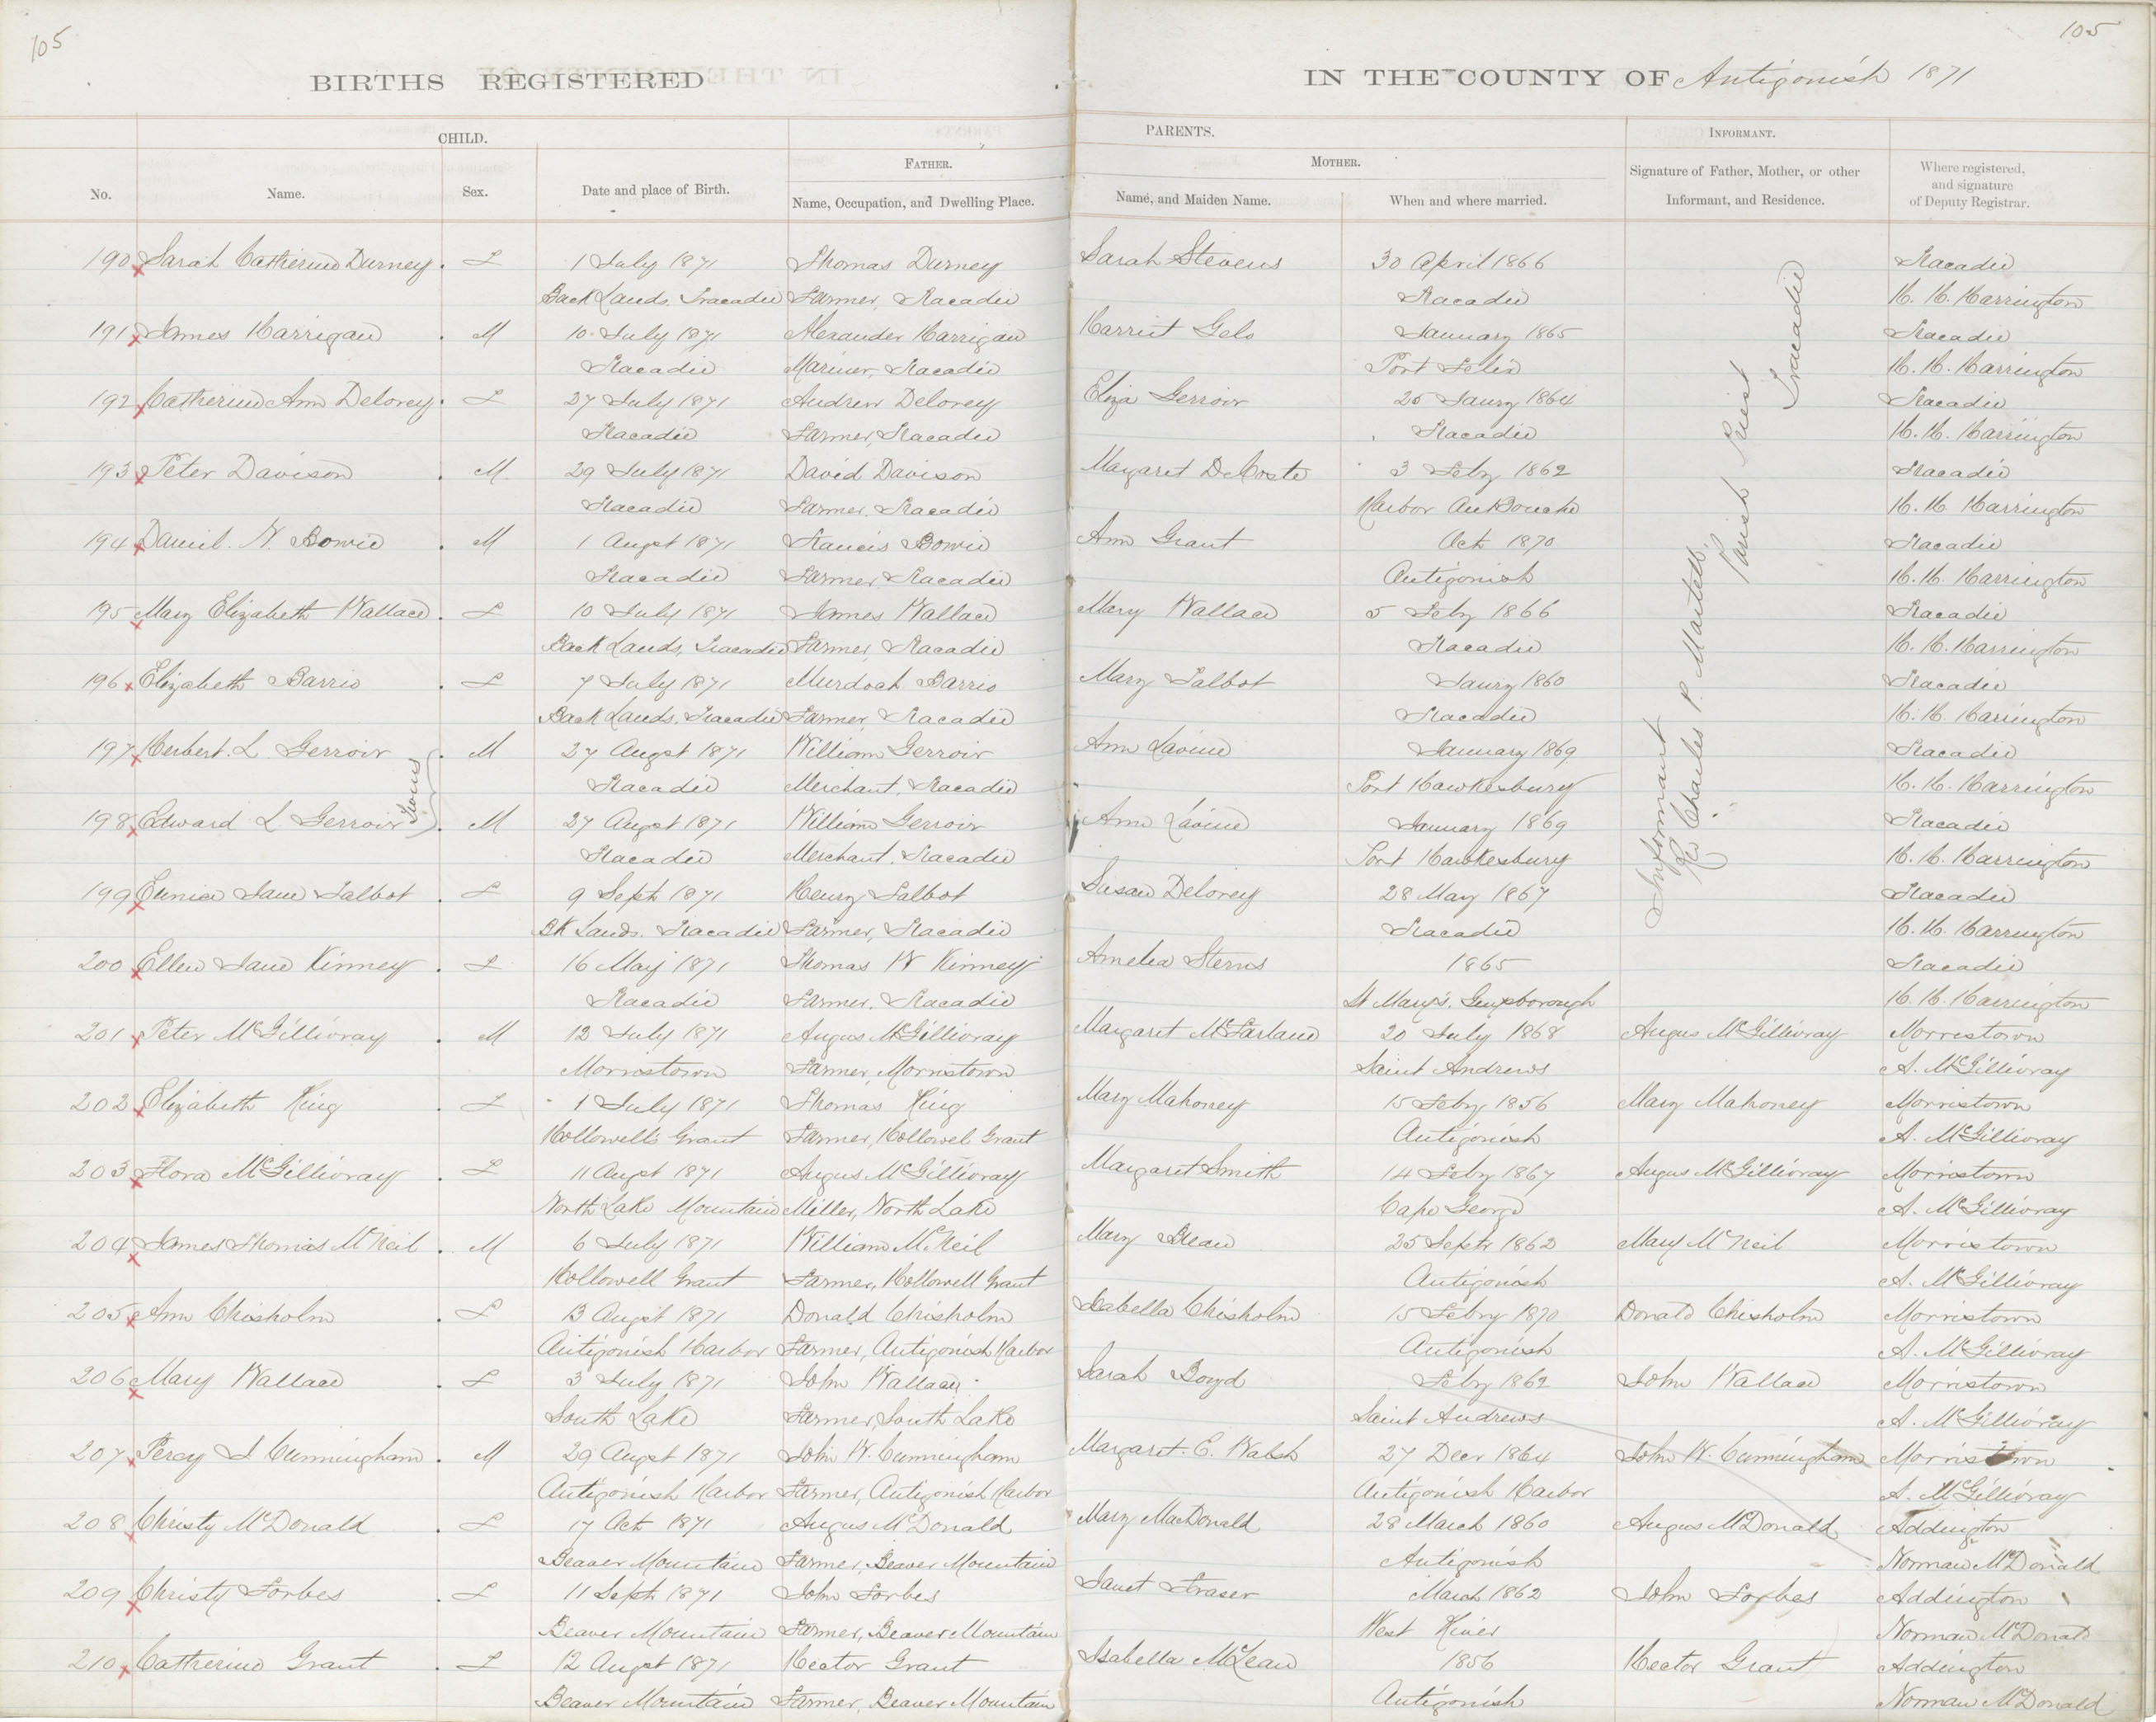 105
105
BIRTHS REGISTERED IN THE COUNTY OF Antigonish 1871
CHILD. PARENTS. INFORMANT.
FATHER. MOTHER.
No. Name. Sex. Date and place of Birth. Name, Occupation, and Dwelling Place. Name, and Maiden Name. When and where married. Signature of Father, Mother, or other Informant, and Residence. Where registered, and signature of Deputy Registrar.
190 Sarah Catherine Durney F 1 July 1871 Thomas Durney Sarah Stevens 30 April 1866 Tracadie
Back Lands, Tracadie Farmer, Tracadie Tracadie H. H. Harrington
191 James Harrigan M 10 July 1871 Alexander Harrigan Harriet January 1865 Tracadie
Tracadie Mariner, Tracadie Port Felix H. H. Harrington
192 Catherine Ann Delorey F 27 July 1871 Andrew Delorey Eliza Gerroir 25 Jany 1864 Tracadie
Tracadie Farmer, Tracadie Tracadie H. H. Harrington
193 Peter Davison M 29 July 1871 David Davison Margaret DeCoste 3 Feby 1862 Tracadie
Tracadie Farmer, Tracadie Harbor Au Bouche H. H. Harrington
194 Daniel. N. Bowie M 1 Augst 1871 Francis Bowie Ann Grant Oct 1870 Tracadie
Tracadie Farmer, Tracadie Antigonish H. H. Harrington
195 Mary Elizabeth Wallace F 10 July 1871 James Wallace Mary Wallace 5 Feby 1866 Tracadie
Back Lands, Tracadie Farmer, Tracadie Tracadie H. H. Harrington
196 Elizabeth Barrio F 7 July 1871 Murdoch Barrio Mary Talbot Jany 1860 Tracadie
Back Lands, Tracadie Farmer, Tracadie Tracadie H. H. Harrington
197 Herbert. L. Gerroir M 27 Augst 1871 William Gerroir Ann Lavine January 1869 Tracadie
Tracadie Merchant, Tracadie Port Hawkesbury H. H. Harrington
Twins
198 Edward L Gerroir M 27 Augst 1871 William Gerroir Ann Lavine January 1869 Tracadie
Tracadie Merchant, Tracadie Port Hawkesbury H. H. Harrington
199 Eunice Jane Talbot F 9 Sept 1871 Henry Talbot Susan Delorey 28 May 1867 Tracadie
Bk Lands. Tracadie Farmer, Tracadie Tracadie H. H. Harrington
Informant
Rev Charles P. Martell,
Parish Priest
Tracadie
200 Ellen Jane Kinney F 16 May 1871 Thomas W Kinney Amelia Sterns 1865 Tracadie
Tracadie Farmer, Tracadie St Mary's, Guysborough H. H. Harrington
201 Peter McGillivray M 12 July 1871 Angus McGillivray Margaret McFarland 20 July 1868 Angus McGillivray Morristown
Morristown Farmer, Morristown Saint Andrews A. McGillivray
202 Elizabeth King F 1 July 1871 Thomas King Mary Mahoney 15 Feby 1856 Mary Mahoney Morristown
Hollowells Grant Farmer, Hollowel Grant Antigonish A. McGillivray
203 Flora McGillivray F 11 Augst 1871 Angus McGillivray Margaret Smith 14 Feby 1867 Angus McGillivray Morristown
North Lake Mountain Miller, North Lake Cape George A. McGillivray
204 James Thomas McNeil M 6 July 1871 William McNeil Mary 25 Septr 1862 Mary McNeil Morristown
Hollowell Grant Farmer, Hollowell Grant Antigonish A. McGillivray
205 Ann Chisholm F 13 Augst 1871 Donald Chisholm Isabella Chisholm 15 Febry 1870 Donald Chisholm Morristown
Antigonish Harbor Farmer, Antigonish Harbor Antigonish A. McGillivray
206 Mary Wallace F 3 July 1871 John Wallace Sarah Boyd Feby 1862 John Wallace Morristown
South Lake Farmer, South Lake Saint Andrews A. McGillivray
207 Percy J Cunningham M 29 Augst 1871 John W. Cunningham Margaret. E. Walsh 27 Decr 1864 John W. Cunningham Morristown
Antigonish Harbor Farmer, Antigonish Harbor Antigonish Harbor A. McGillivray
208 Christy McDonald F 17 Oct 1871 Angus McDonald Mary MacDonald 28 March 1860 Angus McDonald Addington
Beaver Mountain Farmer, Beaver Mountain Antigonish Norman McDonald
209 Christy Forbes F 11 Sept 1871 John Forbes Janet Fraser March 1862 John Forbes Addington
Beaver Mountain Farmer, Beaver Mountain West River Norman McDonald
210 Catherine Grant F 12 Augst 1871 Hector Grant Isabella McLean 1856 Hector Grant Addington
Beaver Mountain Farmer, Beaver Mountain Antigonish Norman McDonald